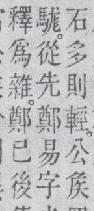 石多則輕。公矦
駹。從先鄭易字
釋爲雜。鄭已後